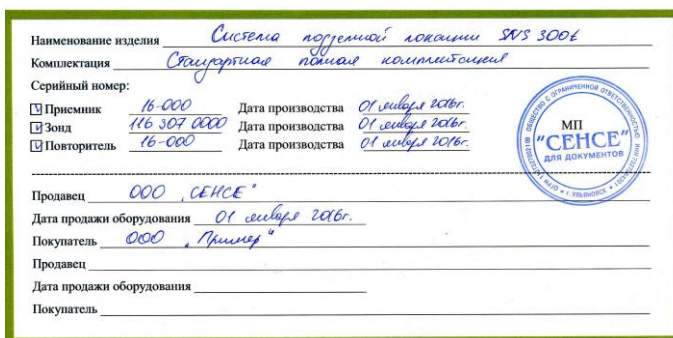 Наименование изделия Система подземной локации SNS 300t
Комплектация Стандартная полная комплектация
Серийный номер:
Приемник 16-000 Дата производства 01 января 2016г.
Зонд 116 307 0000 Дата производства 01 января 2016г.
Повторитель 16-000 Дата производства 01 января 2016г.
МП
"СЕНСЕ"
ДЛЯ ДОКУМЕНТОВ
ОБЩЕСТВО С ОГРАНИЧЕННОЙ ОТВЕТСТВЕННОСТЬЮ
г. УЛЬЯНОВСК
Продавец ООО „СЕНСЕ"
Дата продажи оборудования 01 января 2016г.
Покупатель ООО „Пример"
Продавец
Дата продажи оборудования
Покупатель